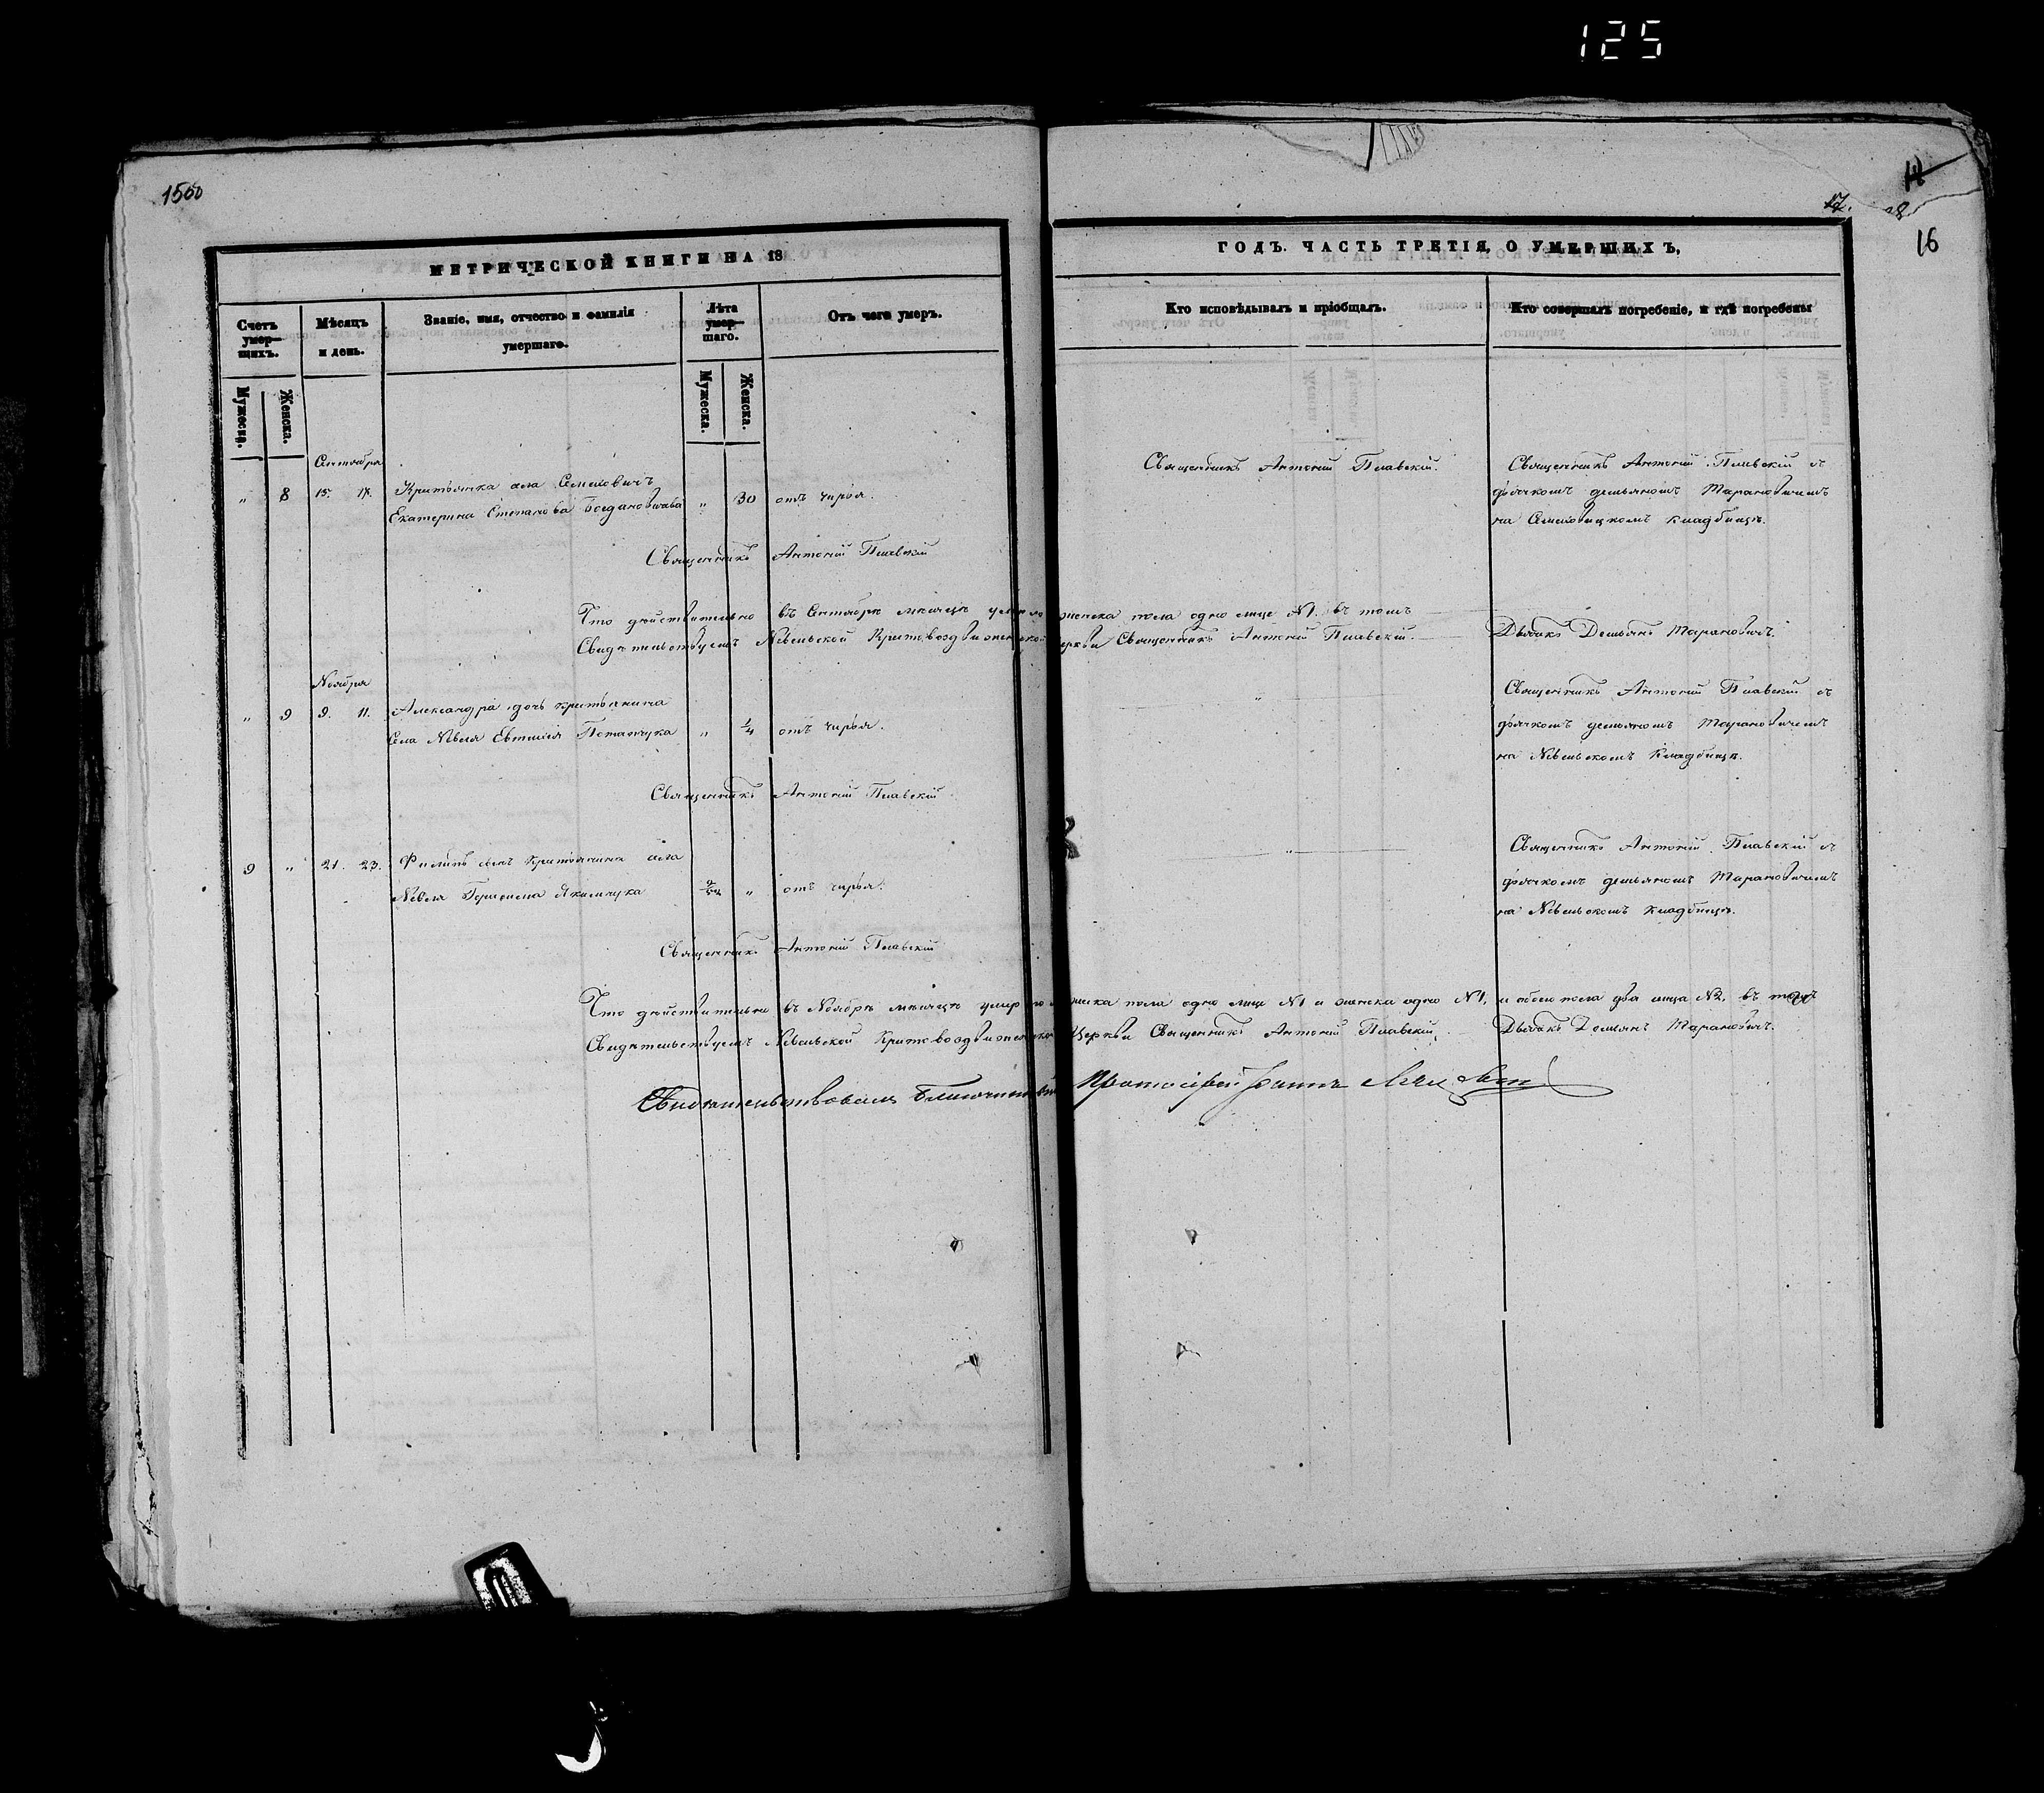 125
1500
17.
28
16
МЕТРИЧЕСКОЙ КНИГИ НА 18
ГОДЪ. ЧАСТЬ ТРЕТІЯ, О УМЕРШИХЪ,
Счетъ умер-щихъ.
Мѣсяцъ и день.
Званіе, имя, отчество и фамилія умершаго.
Лѣта умер-шаго.
Отъ чего умеръ.
Кто исповѣдывалъ и пріобщалъ.
Кто совершалъ погребеніе, и гдѣ погребены
Мужеска.
Женска.
Мужеска.
Женска.
Сентября
„ 8 15. 17. Крестьянка села Семеховичъ
Екатерина Степанова Богдановичова „ 30 отъ чирья.
Священникъ Антоній Плавскій.
Священникъ Антоній Плавскій съ
дьячкомъ демьяномъ Тарановичемъ
на Семеховицкомъ кладбищѣ.
Священникъ Антоній Плавскій
Что дѣйствительно въ Сентябрѣ мѣсяцѣ умерло женска пола одно лице №1. въ томъ
Свидѣтельствуемъ Невельской Крестовоздвиженской Церкви Священникъ Антоній Плавскій. Дьячокъ Демьянъ Тарановичъ.
Ноября
„ 9 9. 11. Александра, дочь крестьянина
Села Невля Евтихія Потапчука „ 1/4 отъ чирья.
„
Священникъ Антоній Плавскій съ
дьячкомъ демьяномъ Тарановичемъ
на Невельскомъ Кладбищѣ.
Священникъ Антоній Плавскій
9 „ 21. 23. Филипъ сынъ Крестьянина села
Невля Якимчука „ отъ чирья.
„
Священникъ Антоній Плавскій съ
дьячкомъ демьяномъ Тарановичемъ
на Невельскомъ Кладбищѣ.
Священникъ Антоній Плавскій
Что дѣйствительно въ Ноябрѣ мѣсяцѣ умерло мужеска пола одно лице №1 и женска одно №1, и обоего пола два лица №2, въ томъ
Свидѣтельствуемъ Невельской Крестовоздвиженской Церкви Священникъ Антоній Плавскій. Дьячокъ Демьянъ Тарановичъ.
Свидѣтельствовалъ Благочинный Протоіерей Іоаннъ